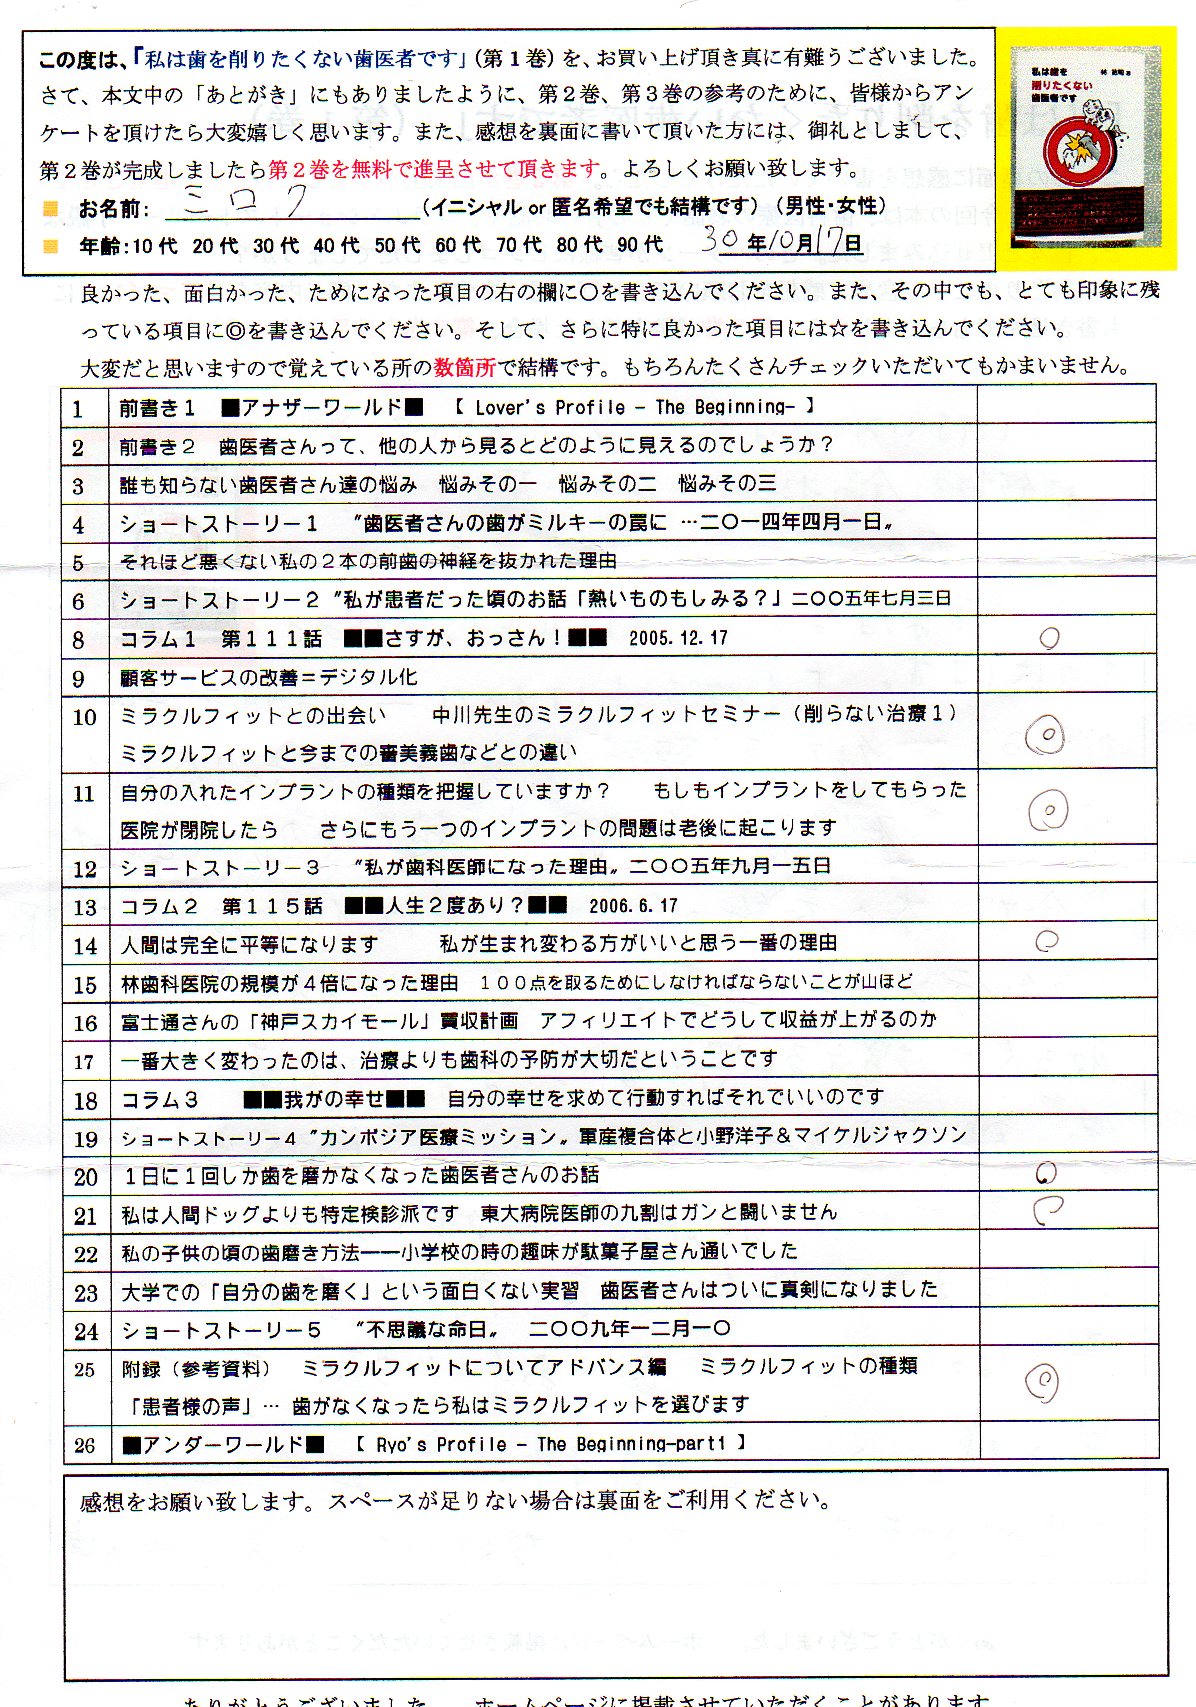 この度は、「私は歯を削りたくない歯医者です」（第１巻）を、お買い上げ頂き真に有難うございました。
さて、本文中の「あとがき」にもありましたように、第２巻、第３巻の参考のために、皆様からアン
ケートを頂けたら大変嬉しく思います。また、感想を裏面に書いて頂いた方には、御礼としまして、
第２巻が完成しましたら第２巻を無料で進呈させて頂きます。よろしくお願い致します。
■ お名前： ミロク （イニシャル or 匿名希望でも結構です）（男性・女性）
■ 年齢：10代 20代 30代 40代 50代 60代 70代 80代 90代 30年10月17日
私は歯を
削りたくない
歯医者です
良かった、面白かった、ためになった項目の右の欄に○を書き込んでください。また、その中でも、とても印象に残
っている項目に◎を書き込んでください。そして、さらに特に良かった項目には☆を書き込んでください。
大変だと思いますので覚えている所の数箇所で結構です。もちろんたくさんチェックいただいてもかまいません。
1 前書き１ ■アナザーワールド■ 【 Lover's Profile － The Beginning- 】
2 前書き２ 歯医者さんって、他の人から見るとどのように見えるのでしょうか？
3 誰も知らない歯医者さん達の悩み 悩みその一 悩みその二 悩みその三
4 ショートストーリー１ 〝歯医者さんの歯がミルキーの罠に …二〇一四年四月一日〟
5 それほど悪くない私の２本の前歯の神経を抜かれた理由
6 ショートストーリー２〝私が患者だった頃のお話「熱いものもしみる？」二〇〇五年七月三日
8 コラム１ 第１１１話 ■■さすが、おっさん！■■ 2005.12.17 ○
9 顧客サービスの改善＝デジタル化
10 ミラクルフィットとの出会い 中川先生のミラクルフィットセミナー（削らない治療１）
ミラクルフィットと今までの審美義歯などとの違い ◎
11 自分の入れたインプラントの種類を把握していますか？ もしもインプラントをしてもらった
医院が閉院したら さらにもう一つのインプラントの問題は老後に起こります ◎
12 ショートストーリー３ 〝私が歯科医師になった理由〟二〇〇五年九月一五日
13 コラム２ 第１１５話 ■■人生２度あり？■■ 2006.6.17
14 人間は完全に平等になります 私が生まれ変わる方がいいと思う一番の理由 ○
15 林歯科医院の規模が４倍になった理由 １００点を取るためにしなければならないことが山ほど
16 富士通さんの「神戸スカイモール」買収計画 アフィリエイトでどうして収益が上がるのか
17 一番大きく変わったのは、治療よりも歯科の予防が大切だということです
18 コラム３ ■■我がの幸せ■■ 自分の幸せを求めて行動すればそれでいいのです
19 ショートストーリー４〝カンボジア医療ミッション〟軍産複合体と小野洋子＆マイケルジャクソン
20 １日に１回しか歯を磨かなくなった歯医者さんのお話 ○
21 私は人間ドッグよりも特定検診派です 東大病院医師の九割はガンと闘いません ○
22 私の子供の頃の歯磨き方法――小学校の時の趣味が駄菓子屋さん通いでした
23 大学での「自分の歯を磨く」という面白くない実習 歯医者さんはついに真剣になりました
24 ショートストーリー５ 〝不思議な命日〟 二〇〇九年一二月一〇
25 附録（参考資料） ミラクルフィットについてアドバンス編 ミラクルフィットの種類
「患者様の声」… 歯がなくなったら私はミラクルフィットを選びます ◎
26 ■アンダーワールド■ 【 Ryo's Profile － The Beginning-part1 】
感想をお願い致します。スペースが足りない場合は裏面をご利用ください。
ありがとうございました。 ホームページに掲載させていただくことがあります